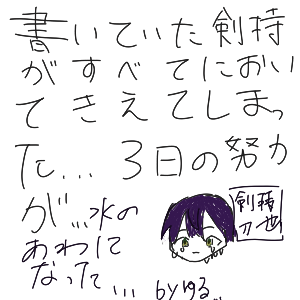 書いていた剣持
がすべてにおい
てきえてしまっ
た...3日の努力
が...水の
あわに
なった...
剣持
刀也
byゆる..